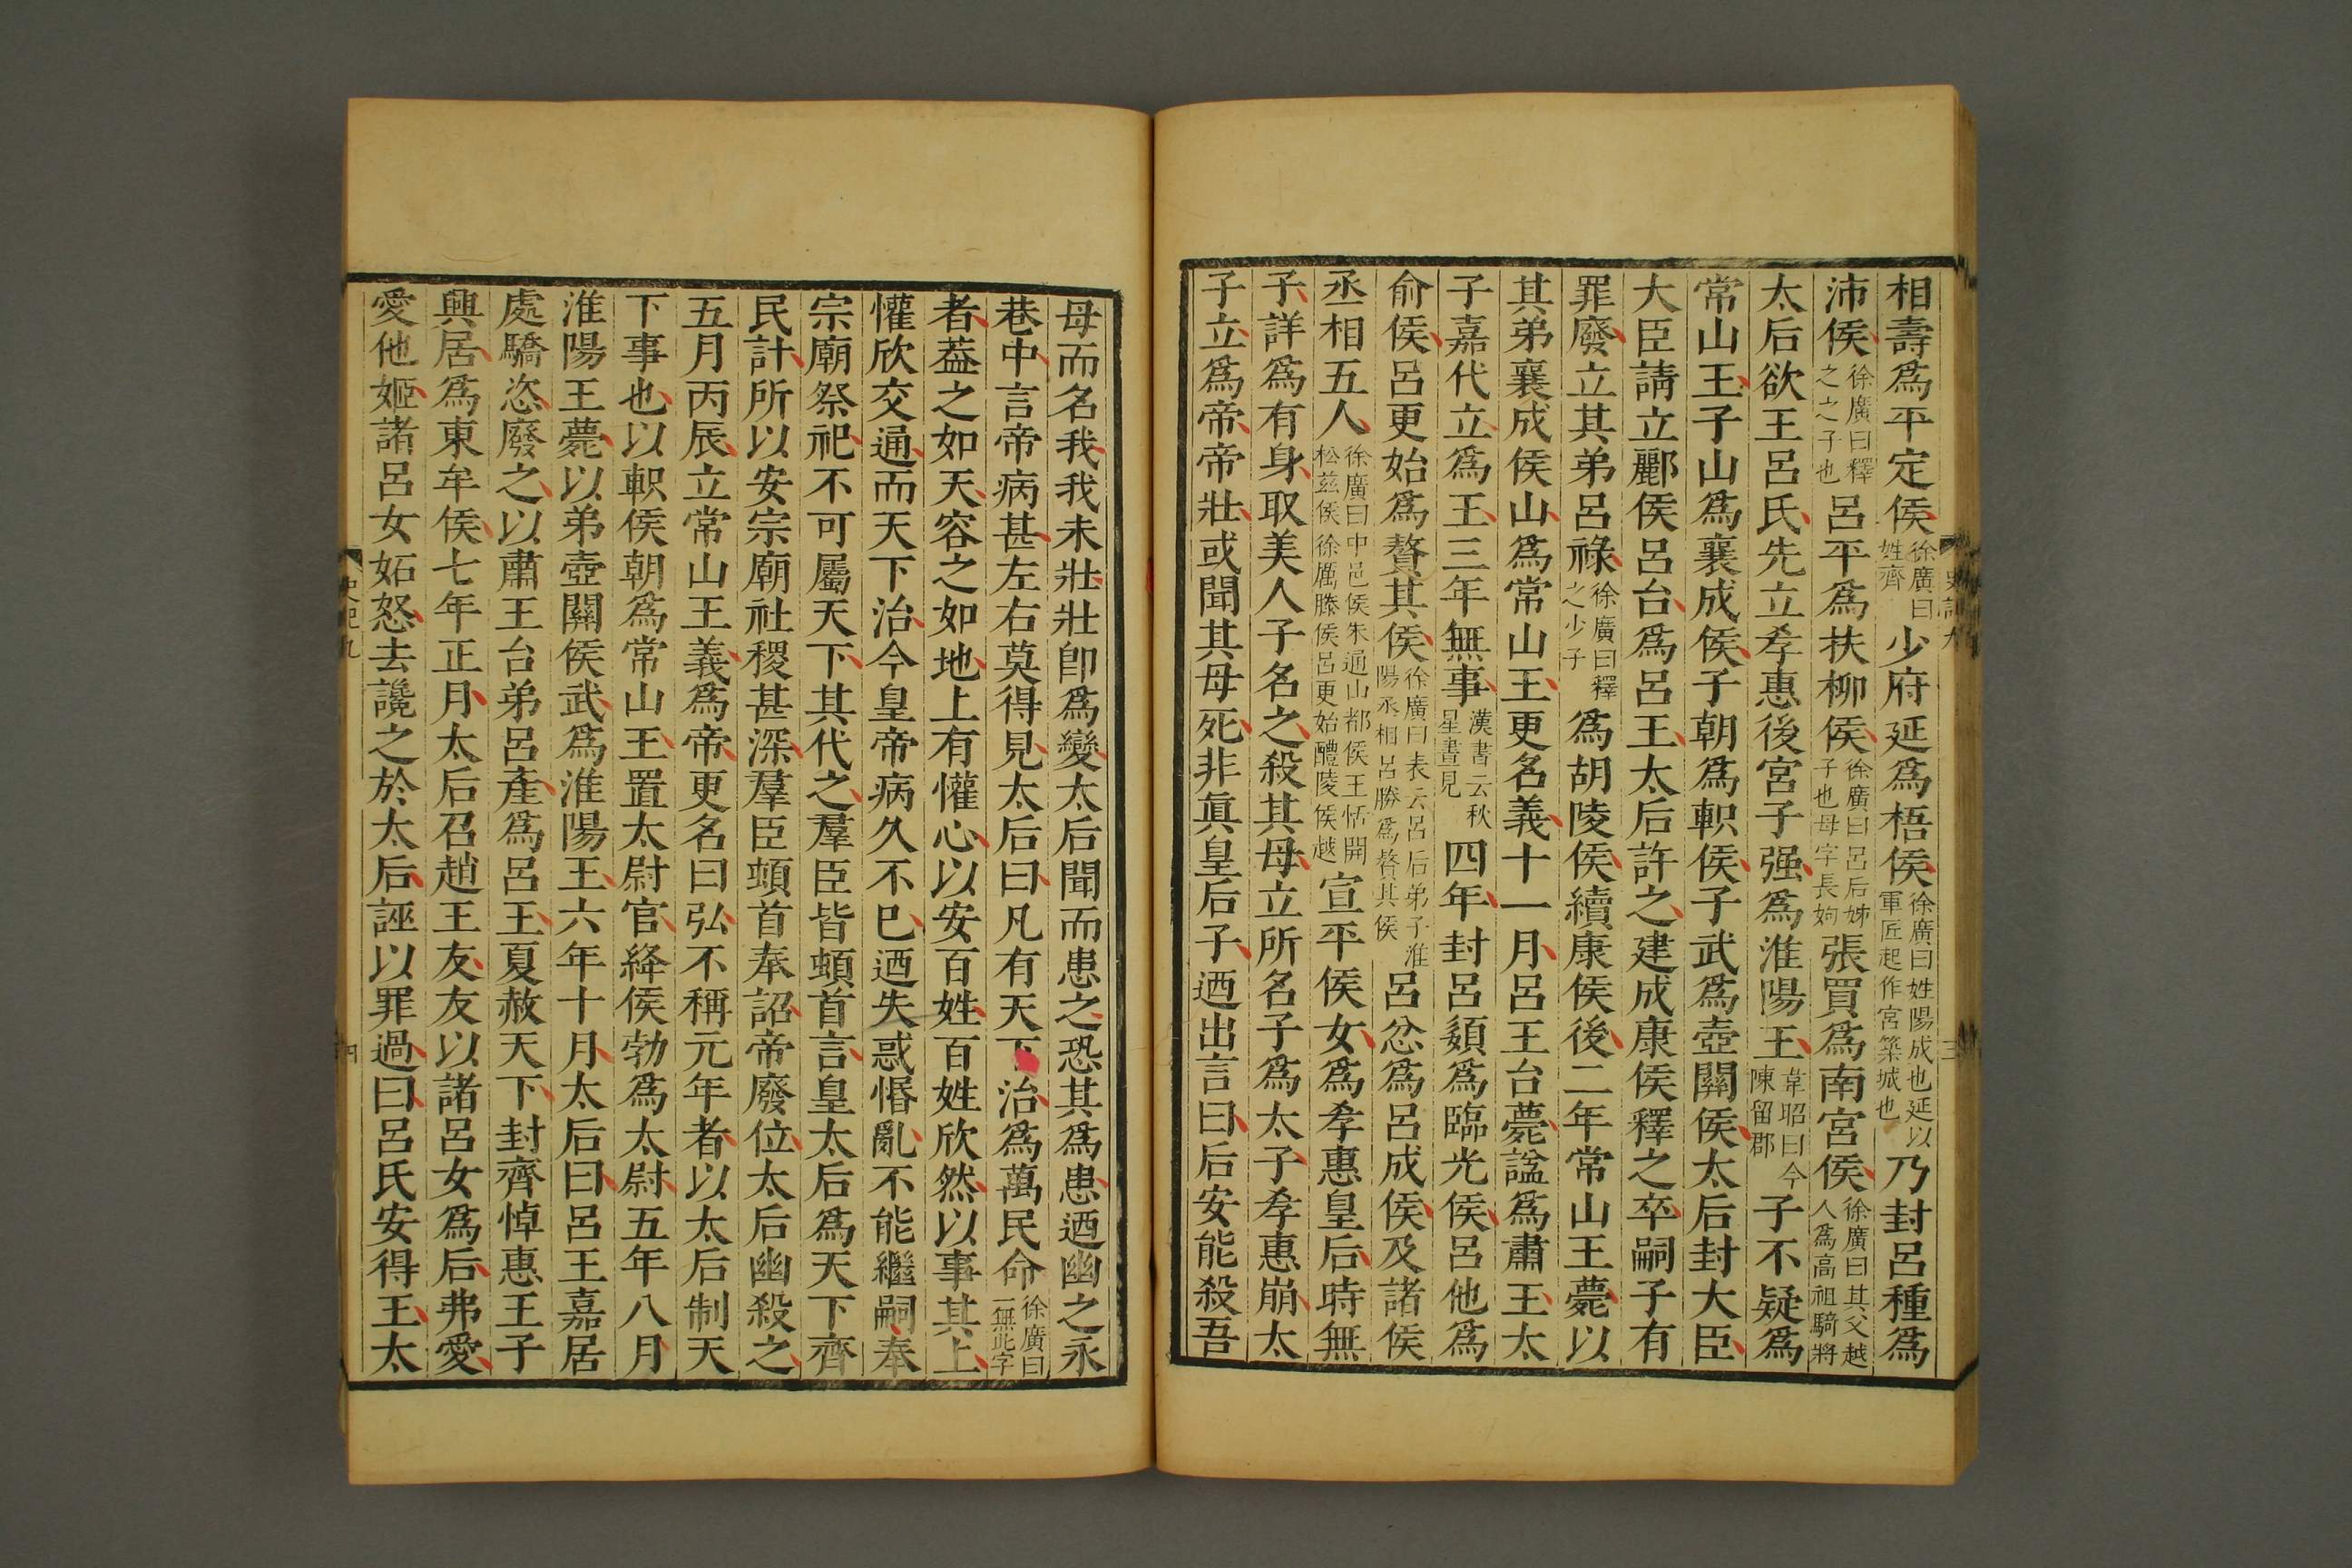 相壽爲平定侯徐廣曰姓齊少府延爲梧侯徐廣曰姓陽成也延以軍匠起作宮築城也乃封呂種爲
沛侯徐廣曰釋之之子也呂平爲扶柳侯徐廣曰呂后姊子也母字長姁張買爲南宮侯徐廣曰其父越人爲高祖騎將
太后欲王呂氏先立孝惠後宮子强爲淮陽王韋昭曰今陳留郡子不疑爲
常山王子山爲襄成侯子朝爲軹侯子武爲壺關侯太后封大臣
大臣請立酈侯呂台爲呂王太后許之建成康侯釋之卒嗣子有
罪廢立其弟呂祿徐廣曰釋之少子爲胡陵侯續康侯後二年常山王薨以
其弟襄成侯山爲常山王更名義十一月呂王台薨諡爲肅王太
子嘉代立爲王三年無事漢書云秋星晝見四年封呂嬃爲臨光侯呂他爲
俞侯呂更始爲贅其侯徐廣曰表云呂后弟子淮陽丞相呂勝爲贅其侯呂忿爲呂成侯及諸侯
丞相五人徐廣曰中邑侯朱通山都侯王恬開松茲侯徐厲滕侯呂更始醴陵侯越宣平侯女爲孝惠皇后時無
子詳爲有身取美人子名之殺其母立所名子爲太子孝惠崩太
子立爲帝帝壯或聞其母死非眞皇后子迺出言曰后安能殺吾
史記九
三
母而名我我未壯壯卽爲變太后聞而患之恐其爲患迺幽之永
巷中言帝病甚左右莫得見太后曰凡有天下治爲萬民命徐廣曰一無此字
者葢之如天容之如地上有懽心以安百姓百姓欣然以事其上
懽欣交通而天下治今皇帝病久不已迺失惑惛亂不能繼嗣奉
宗廟祭祀不可屬天下其代之羣臣皆頓首言皇太后爲天下齊
民計所以安宗廟社稷甚深羣臣頓首奉詔帝廢位太后幽殺之
五月丙辰立常山王義爲帝更名曰弘不稱元年者以太后制天
下事也以軹侯朝爲常山王置太尉官絳侯勃爲太尉五年八月
淮陽王薨以弟壺關侯武爲淮陽王六年十月太后曰呂王嘉居
處驕恣廢之以肅王台弟呂產爲呂王夏赦天下封齊悼惠王子
興居爲東牟侯七年正月太后召趙王友友以諸呂女爲后弗愛
愛他姬諸呂女妬怒去讒之於太后誣以罪過曰呂氏安得王太
史記九
四